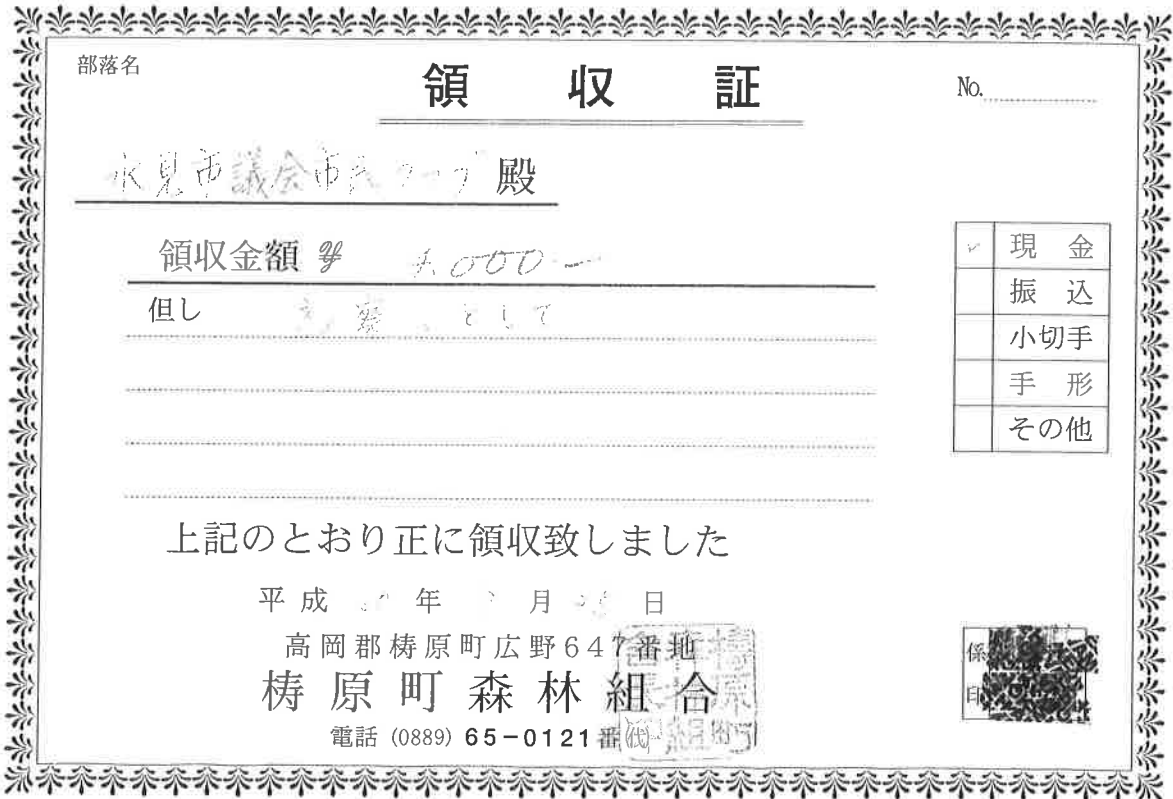 部落名
領収証
No.
氷見市議会市民クラブ 殿
領収金額 ¥ 4,000-
現金
振込
小切手
手形
その他
但し として
上記のとおり正に領収致しました
平成 年 月 日
高岡郡梼原町広野647番地
梼原町森林組合
電話 (0889) 65-0121番(代)
係印